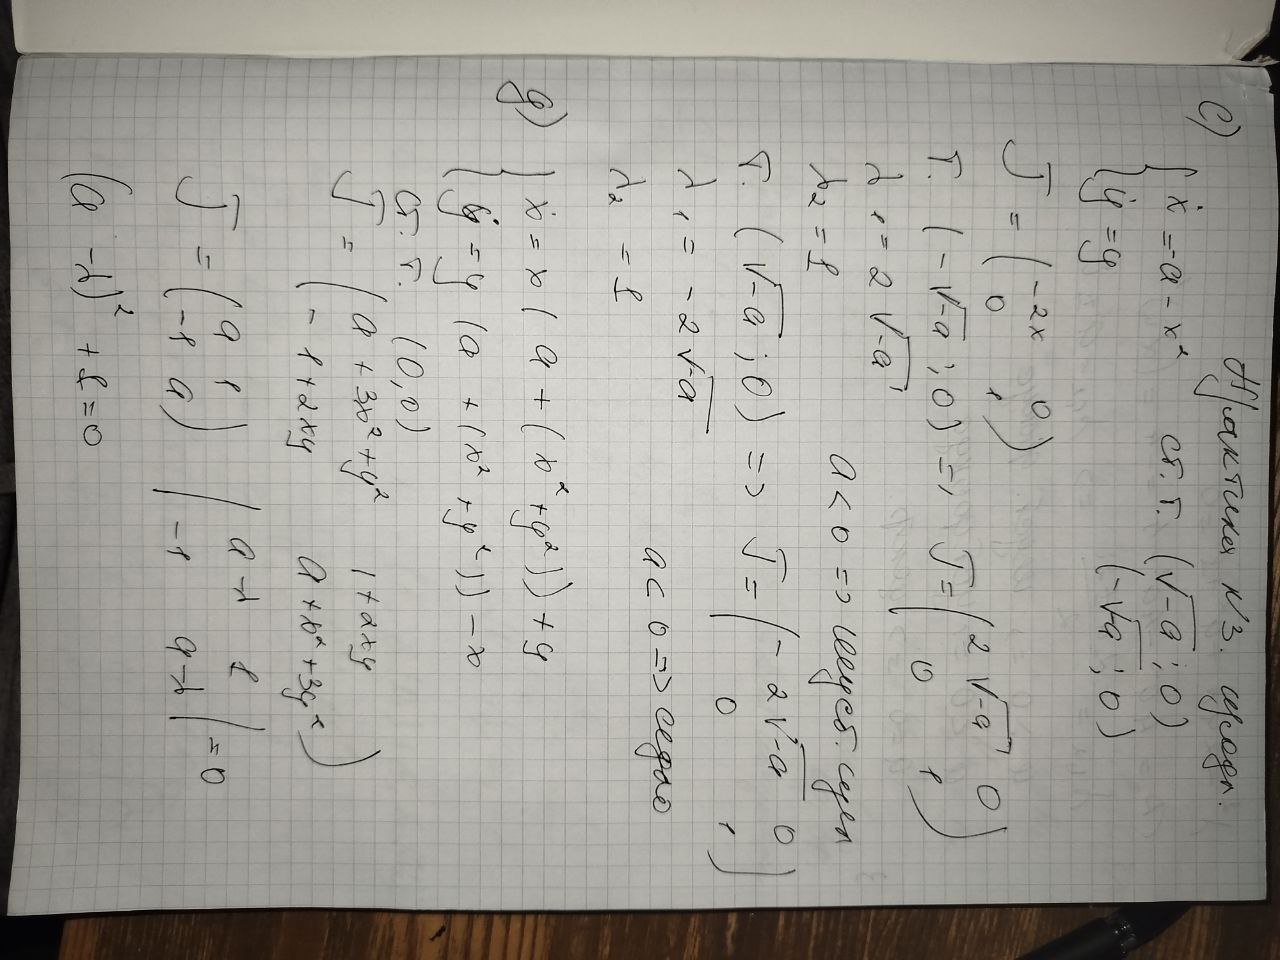 Практика №3. продл.
c) { ẋ = -a - x² ст.т. (√-a ; 0)
{ ẏ = y (-√-a ; 0)
J = ( -2x 0
0 1 )
т. (-√-a ; 0) => J = ( 2√-a 0
0 1 )
λ₁ = 2√-a
λ₂ = 1 a < 0 => неуст. узел
т. (√-a ; 0) => J = ( -2√-a 0
0 1 )
λ₁ = -2√-a
λ₂ = 1 a < 0 => седло
g) { ẋ = x (a + (x² + y²)) + y
{ ẏ = y (a + (x² + y²)) - x
ст. т. (0,0)
J = ( a + 3x² + y² 1 + 2xy
-1 + 2xy a + x² + 3y² )
J = ( a 1
-1 a ) | a-λ 1
-1 a-λ | = 0
(a - λ)² + 1 = 0